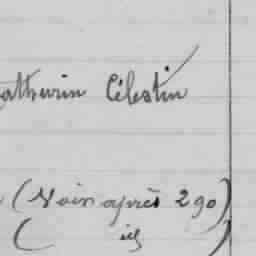 athurin Célestin
(Voir après 290)
( id )